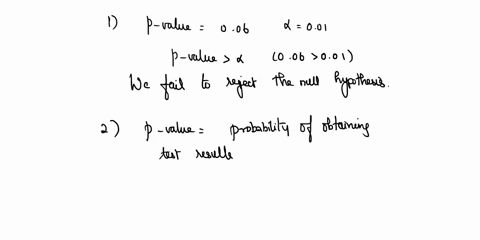 1) p-value = 0.06 α = 0.01
p-value > α (0.06 > 0.01)
We fail to reject the null hypothesis.
2) p-value = probability of obtaining
test results